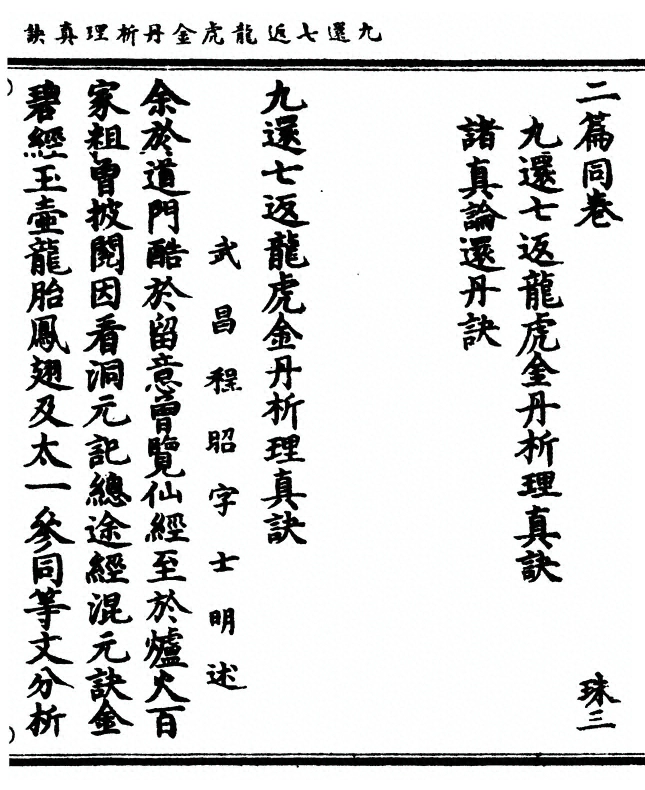 九還七返龍虎金丹析理真訣
二篇同卷 珠三
九還七返龍虎金丹析理真訣
諸真論還丹訣
九還七返龍虎金丹析理真訣
武昌程昭字士明述
余於道門酷於留意曾覽仙經至於爐火百
家粗曾披閱因看洞元記總途經混元訣金
碧經玉壺龍胎鳳翅及太一參同等文分析